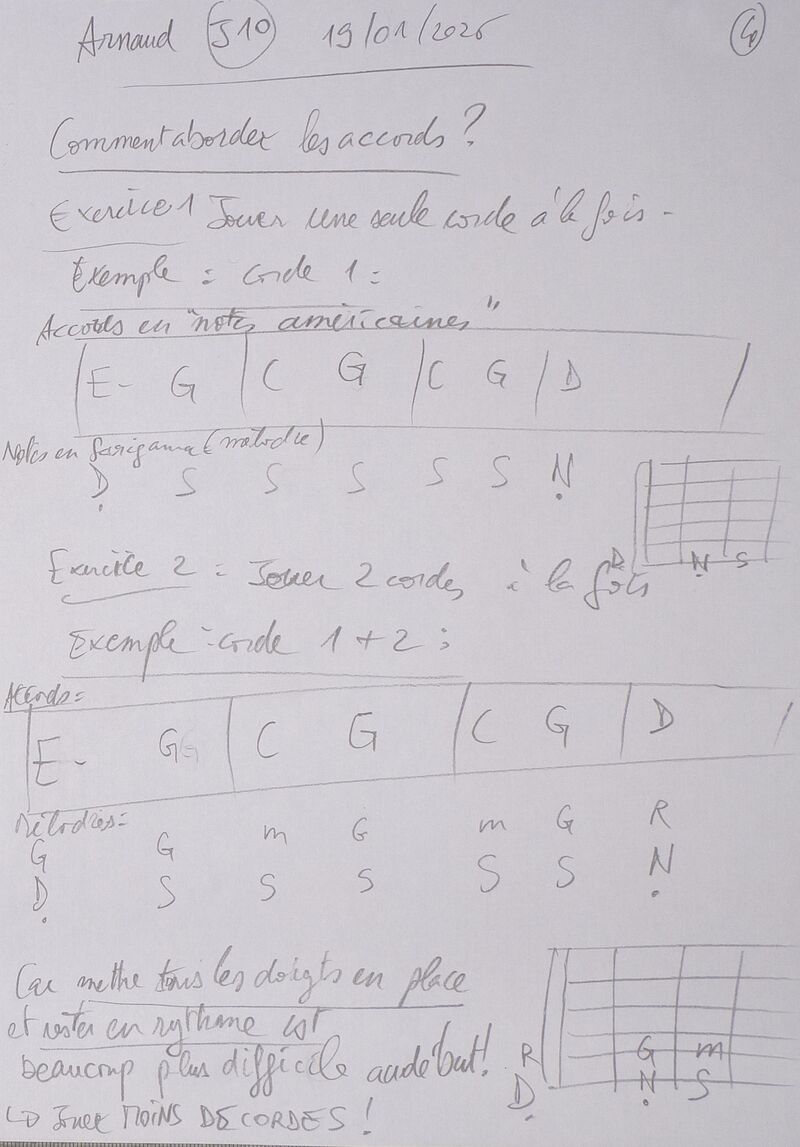 Arnaud J10 19/01/2026
Comment aborder les accords ?
Exercice 1 Jouer une seule corde à la fois -
Exemple = corde 1 =
Accords en "notes américaines"
E- G | C G | C G | D
Notes en Sarigama (mélodie)
Ḍ S S S S S Ṇ
Ḍ Ṇ S
Exercice 2 = Jouer 2 cordes à la fois
Exemple = corde 1 + 2 :
Accords =
E- G | C G | C G | D
Mélodies =
G G m G m G R
Ḍ S S S S S Ṇ
Car mettre tous les doigts en place
et rester en rythme est
beaucoup plus difficile au début !
↳ Jouer MOINS DE CORDES !
R G m
Ḍ Ṇ S